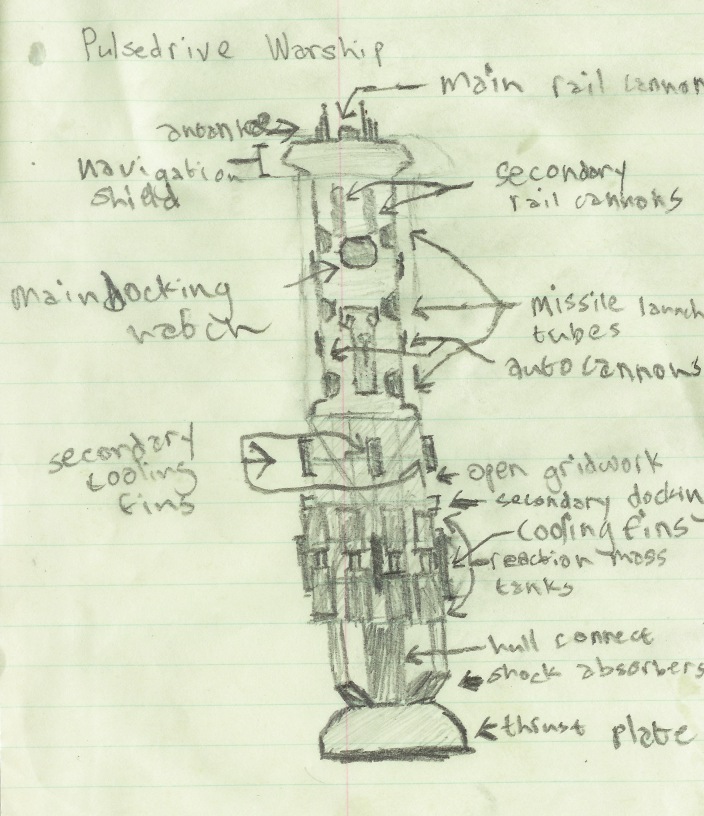 Pulsedrive Warship
main rail cannon
navigation
shield
secondary
rail cannons
main docking
hatch
missile launch
tubes
auto cannons
secondary
cooling
fins
open gridwork
secondary dockin
cooling fins
reaction mass
tanks
hull connect
shock absorbers
thrust plate